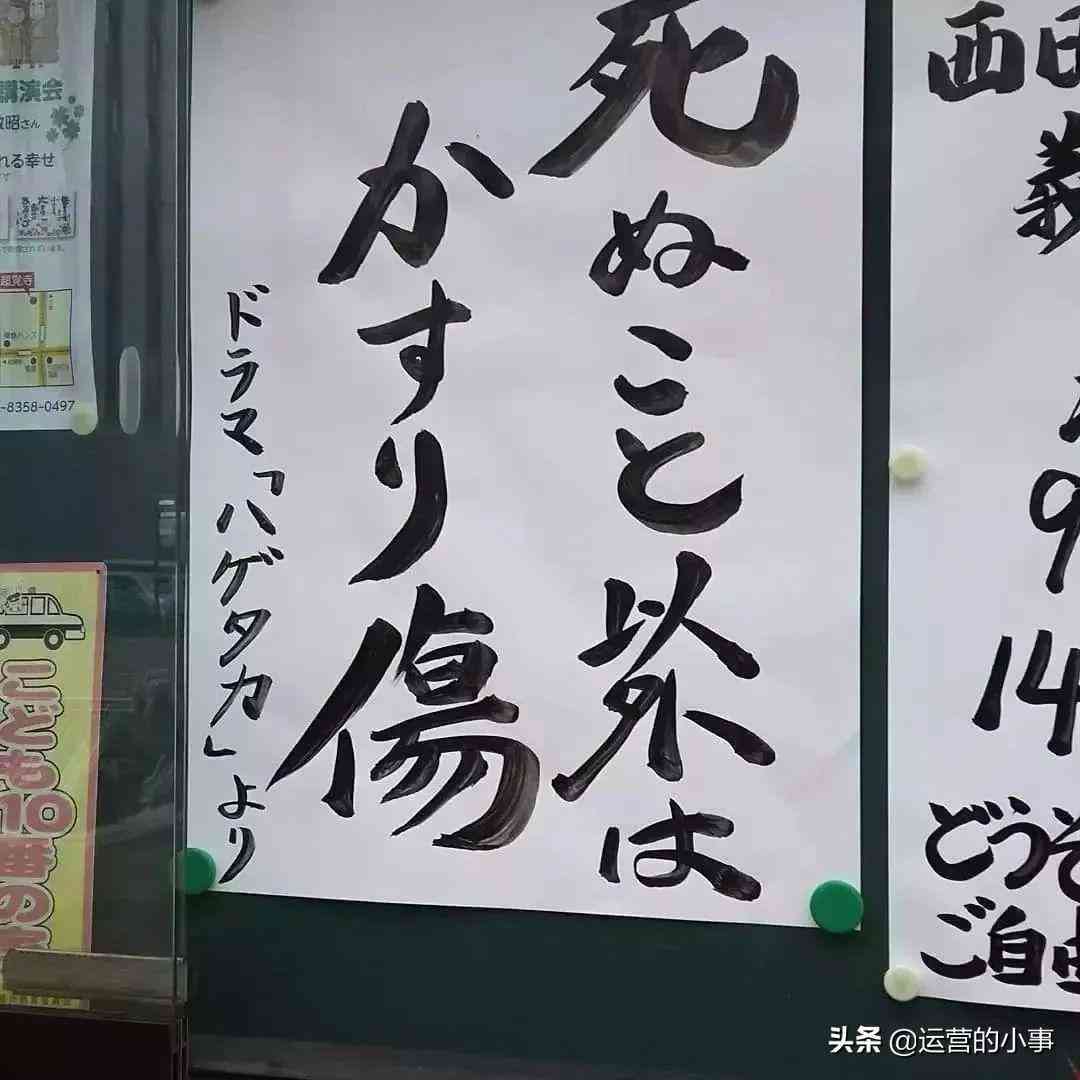 死ぬこと以外は
かすり傷
ドラマ「ハゲタカ」より
西田
義
9
14
どうぞ
ご自由
講演会
昭さん
れる幸せ
-8358-0497
こども10番の
头条 @运营的小事